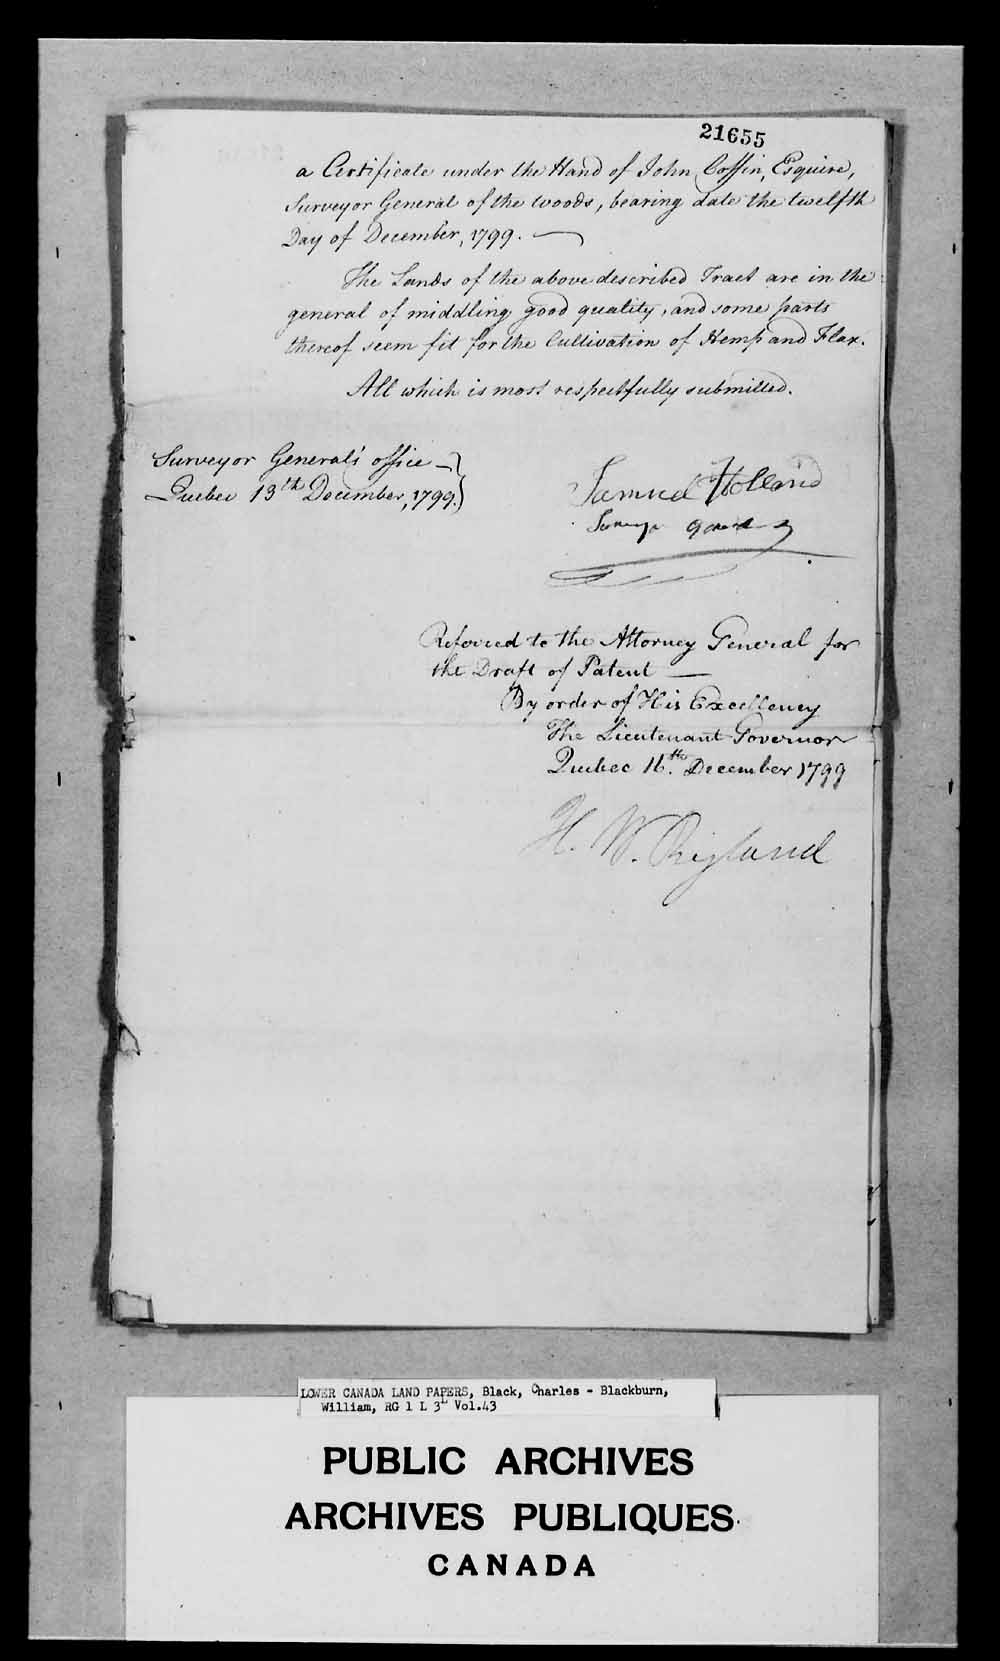 21655
a Certificate under the Hand of John Coffin, Esquire,
Surveyor General of the woods, bearing date the twelfth
Day of December, 1799.
The Lands of the above described Tract are in the
general of middling good quality, and some parts
thereof seem fit for the Cultivation of Hemp and Flax.
All which is most respectfully submitted.
Surveyor General's office
Quebec 13th December, 1799.
Samuel Holland
Referred to the Attorney General for
the Draft of Patent
By order of His Excellency
The Lieutenant Governor
Quebec 16th December 1799
H. W. Ryland
LOWER CANADA LAND PAPERS, Black, Charles - Blackburn,
William, RG 1 L 3L Vol.43
PUBLIC ARCHIVES
ARCHIVES PUBLIQUES
CANADA